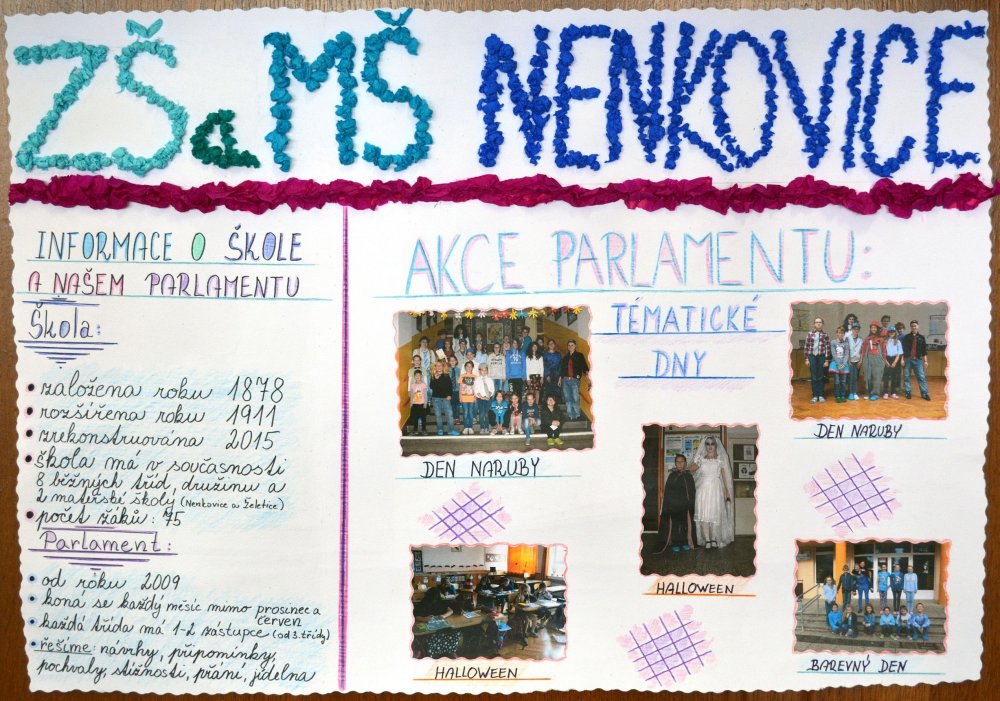 ZŠ a MŠ NENKOVICE
INFORMACE O ŠKOLE
A NAŠEM PARLAMENTU
Škola:
• založena roku 1878
• rozšířena roku 1911
• zrekonstruována 2015
• škola má v současnosti
8 běžných tříd, družinu a
2 mateřské školy (Nenkovice a Želetice)
• počet žáků: 75
Parlament:
• od roku 2009
• koná se každý měsíc mimo prosinec a
červen
• každá třída má 1-2 zástupce (od 3. třídy)
• řešíme: návrhy, připomínky,
pochvaly, stížnosti, přání, jídelna
AKCE PARLAMENTU:
TÉMATICKÉ
DNY
DEN NARUBY
DEN NARUBY
HALLOWEEN
HALLOWEEN
BAREVNÝ DEN